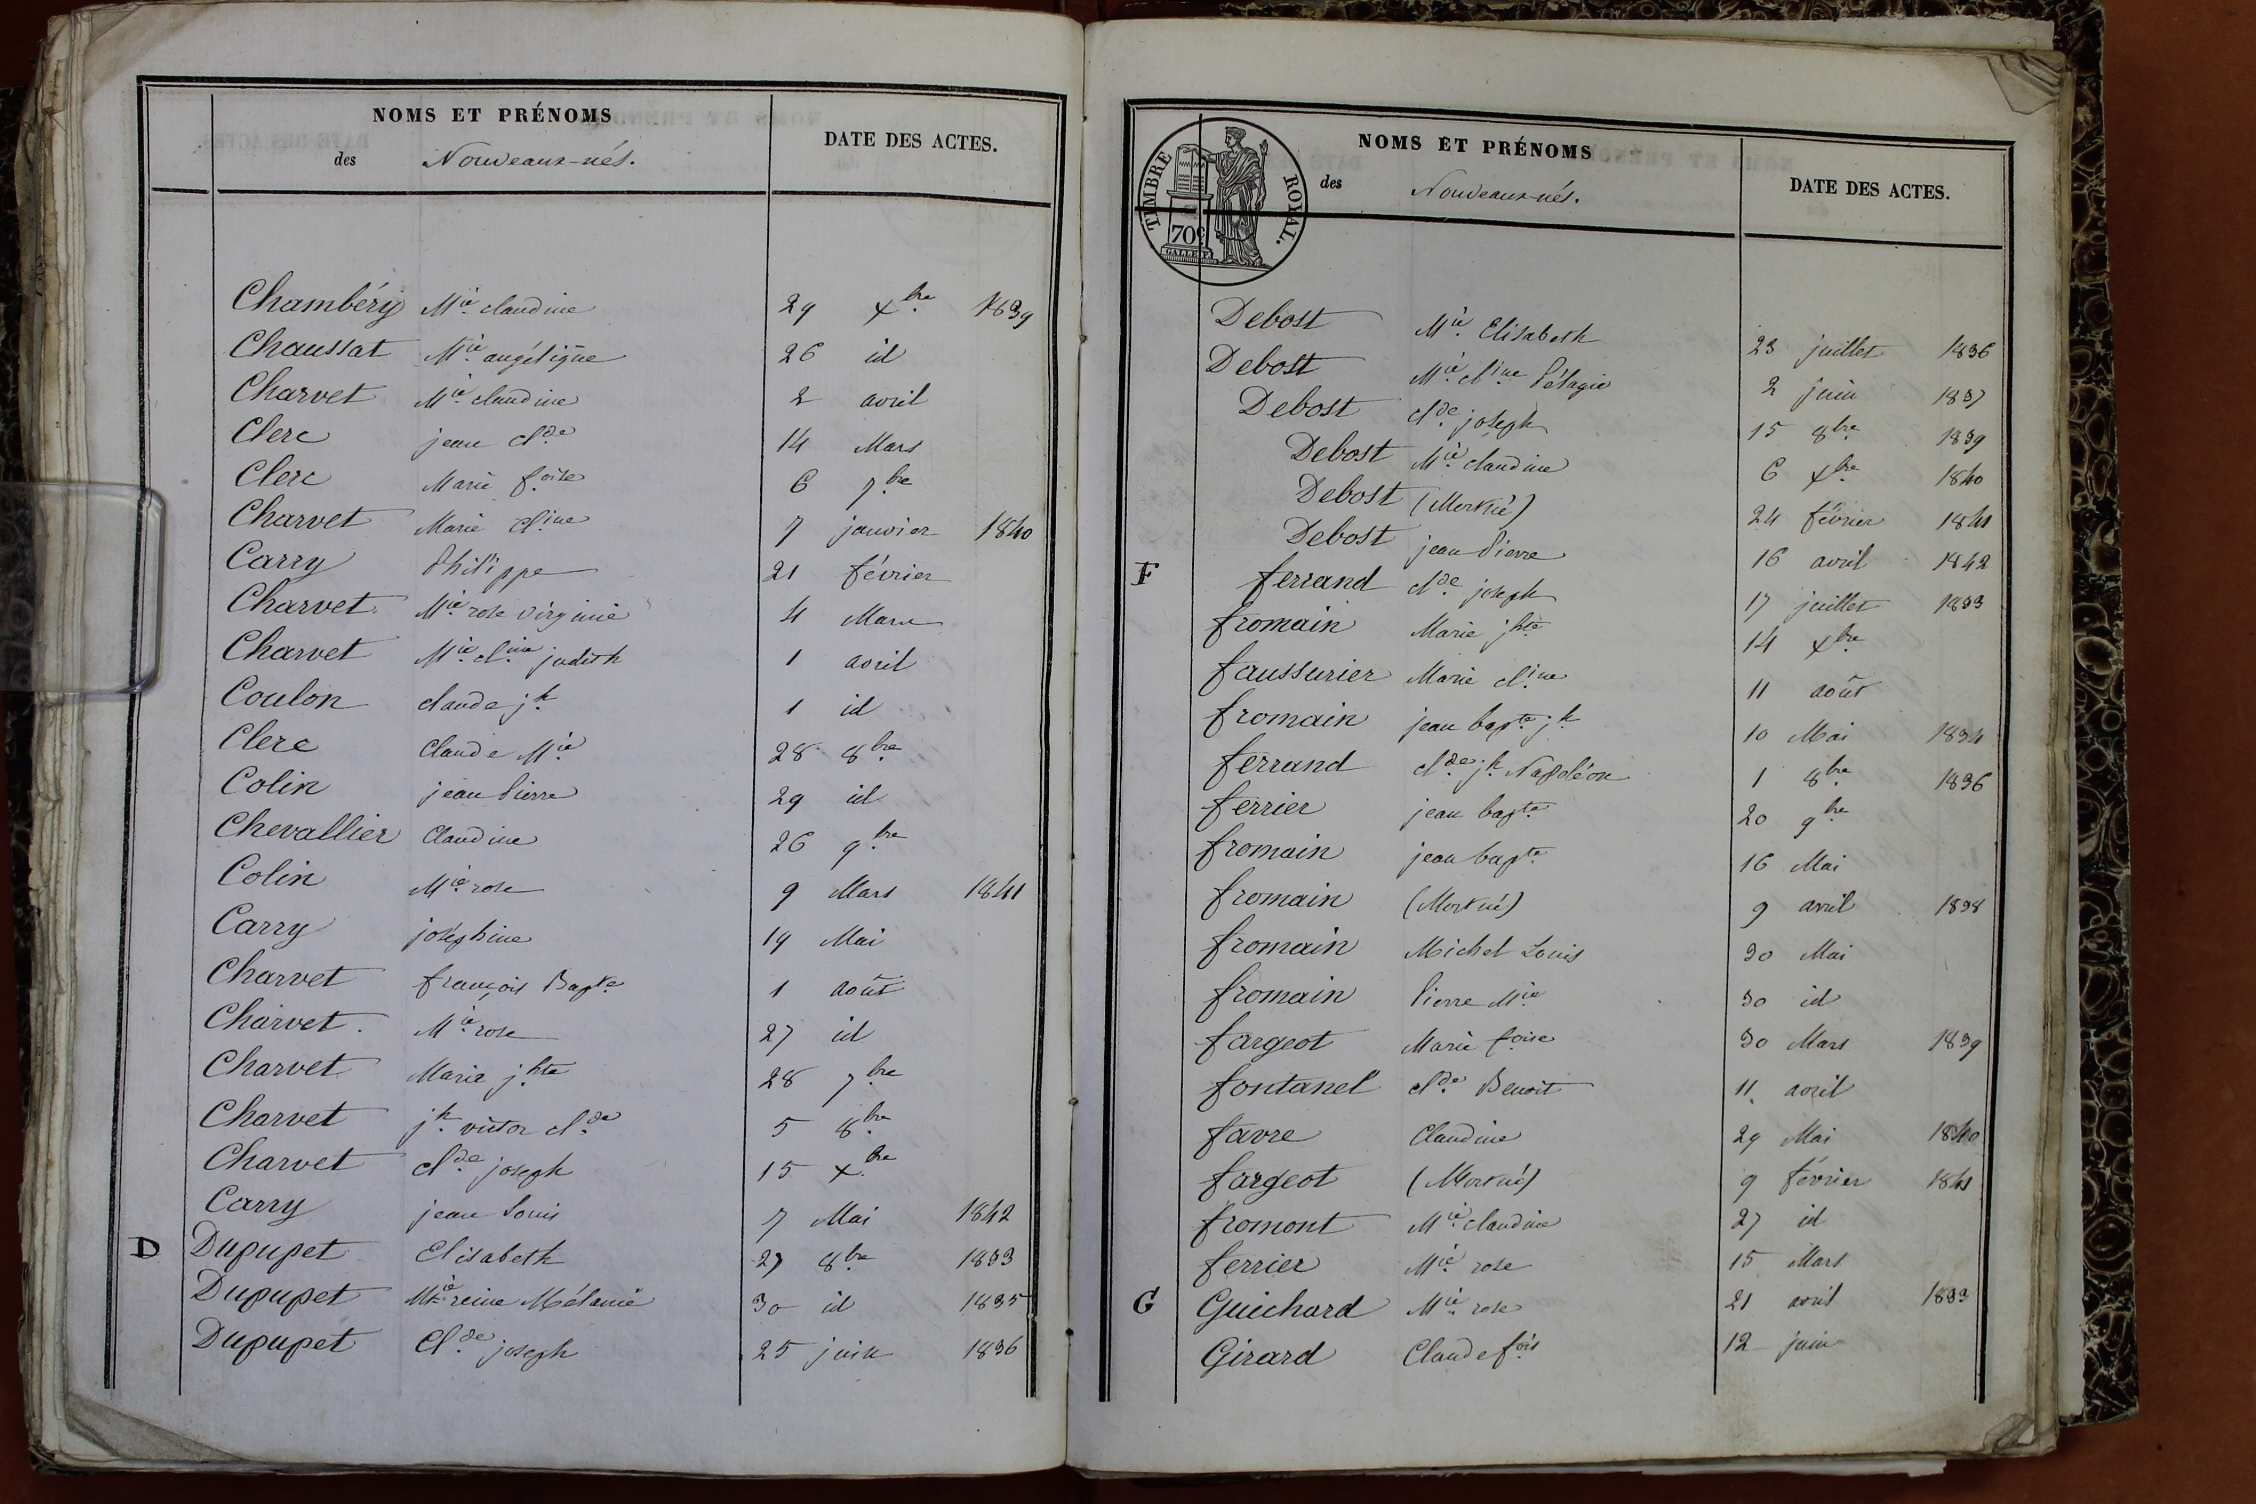 NOMS ET PRÉNOMS
des Nouveaux-nés.
DATE DES ACTES.
Chambéry Mie claudine 29 xbre 1839
Chaussat Mie angélique 26 id
Charvet Mie claudine 2 avril
Clerc jean clde 14 Mars
Clerc Marie foise 6 7bre
Charvet Marie cline 7 janvier 1840
Carry Philippe 21 février
Charvet Mie rose virginie 4 Mars
Charvet Mie cline judith 1 avril
Coulon claude jh 1 id
Clerc Claude Mie 28 8bre
Colin jean Pierre 29 id
Chevallier Claudine 26 9bre
Colin Mie rose 9 Mars 1841
Carry joséphine 19 Mai
Charvet françois Bapte 1 août
Charvet Mie rose 27 id
Charvet Marie jhte 28 7bre
Charvet jh victor clde 5 8bre
Charvet clde joseph 15 xbre
Carry jean Louis 7 Mai 1842
D Dupupet Elisabeth 27 8bre 1833
Dupupet Mie reine Mélanie 30 id 1835
Dupupet Clde joseph 25 juin 1836
TIMBRE ROYAL.
70c
NOMS ET PRÉNOMS
des Nouveaux-nés.
DATE DES ACTES.
Debost Mie Elisabeth 23 juillet 1836
Debost Mie cline Pélagie 2 juin 1837
Debost clde joseph 15 8bre 1839
Debost Mie claudine 6 xbre 1840
Debost (Mort né) 24 février 1841
Debost jean Pierre 16 avril 1842
F ferrand clde joseph 17 juillet 1833
fromain Marie jhte 14 xbre
faussurier Marie cline 11 août
fromain jean bapte jh 10 Mai 1834
ferrand clde jh Napoléon 1 8bre 1836
ferrier jean bapte 20 9bre
fromain jean bapte 16 Mai
fromain (Mort né) 9 avril 1838
fromain Michel Louis 30 Mai
fromain Pierre Mie 30 id
fargeot Marie foise 30 Mars 1839
fontanel clde Benoit 11 avril
favre Claudine 29 Mai 1840
fargeot (Mort né) 9 février 1841
fromont Mie claudine 27 id
ferrier Mie rose 15 Mars
G Guichard Mie rose 21 avril 1833
Girard Claude fois 12 juin